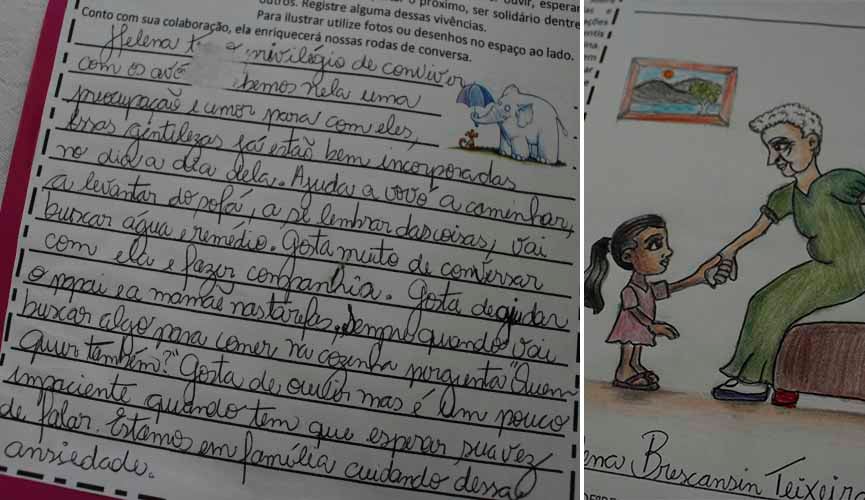 o próximo, ser solidário dentre
outros. Registre alguma dessas vivências.
Para ilustrar utilize fotos ou desenhos no espaço ao lado.
Conto com sua colaboração, ela enriquecerá nossas rodas de conversa.
Helena privilégio de conviver
com os avó bemos nela uma
preocupação e amor para com eles,
essas gentilezas já estão bem incorporadas
no dia a dia dela. Ajuda a vovó a caminhar,
a levantar do sofá, a se lembrar das coisas, vai
buscar água e remédio. Gosta muito de conversar
com ela e fazer companhia. Gosta de ajudar
o papai e a mamãe nas tarefas, sempre quando vai
buscar algo para comer na cozinha pergunta "Quem
quer também?" Gosta de ouvir mas é um pouco
impaciente quando tem que esperar sua vez
de falar. Estamos em família cuidando dessa
ansiedade.
ena Brescansin Teixeira